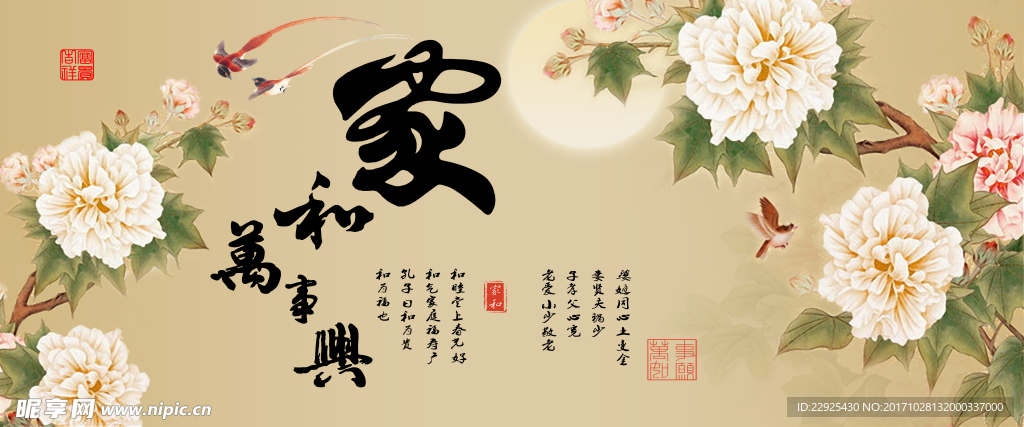 富貴
吉祥
家
和
萬
事
興
婆媳同心土变金
妻贤夫祸少
子孝父心宽
老爱小少敬老
家和
和睦堂上春光好
和气家庭福寿广
孔子曰和为贵
和为福也
萬事
如願
昵享网 www.nipic.cn
ID:22925430 NO:20171028132000337000